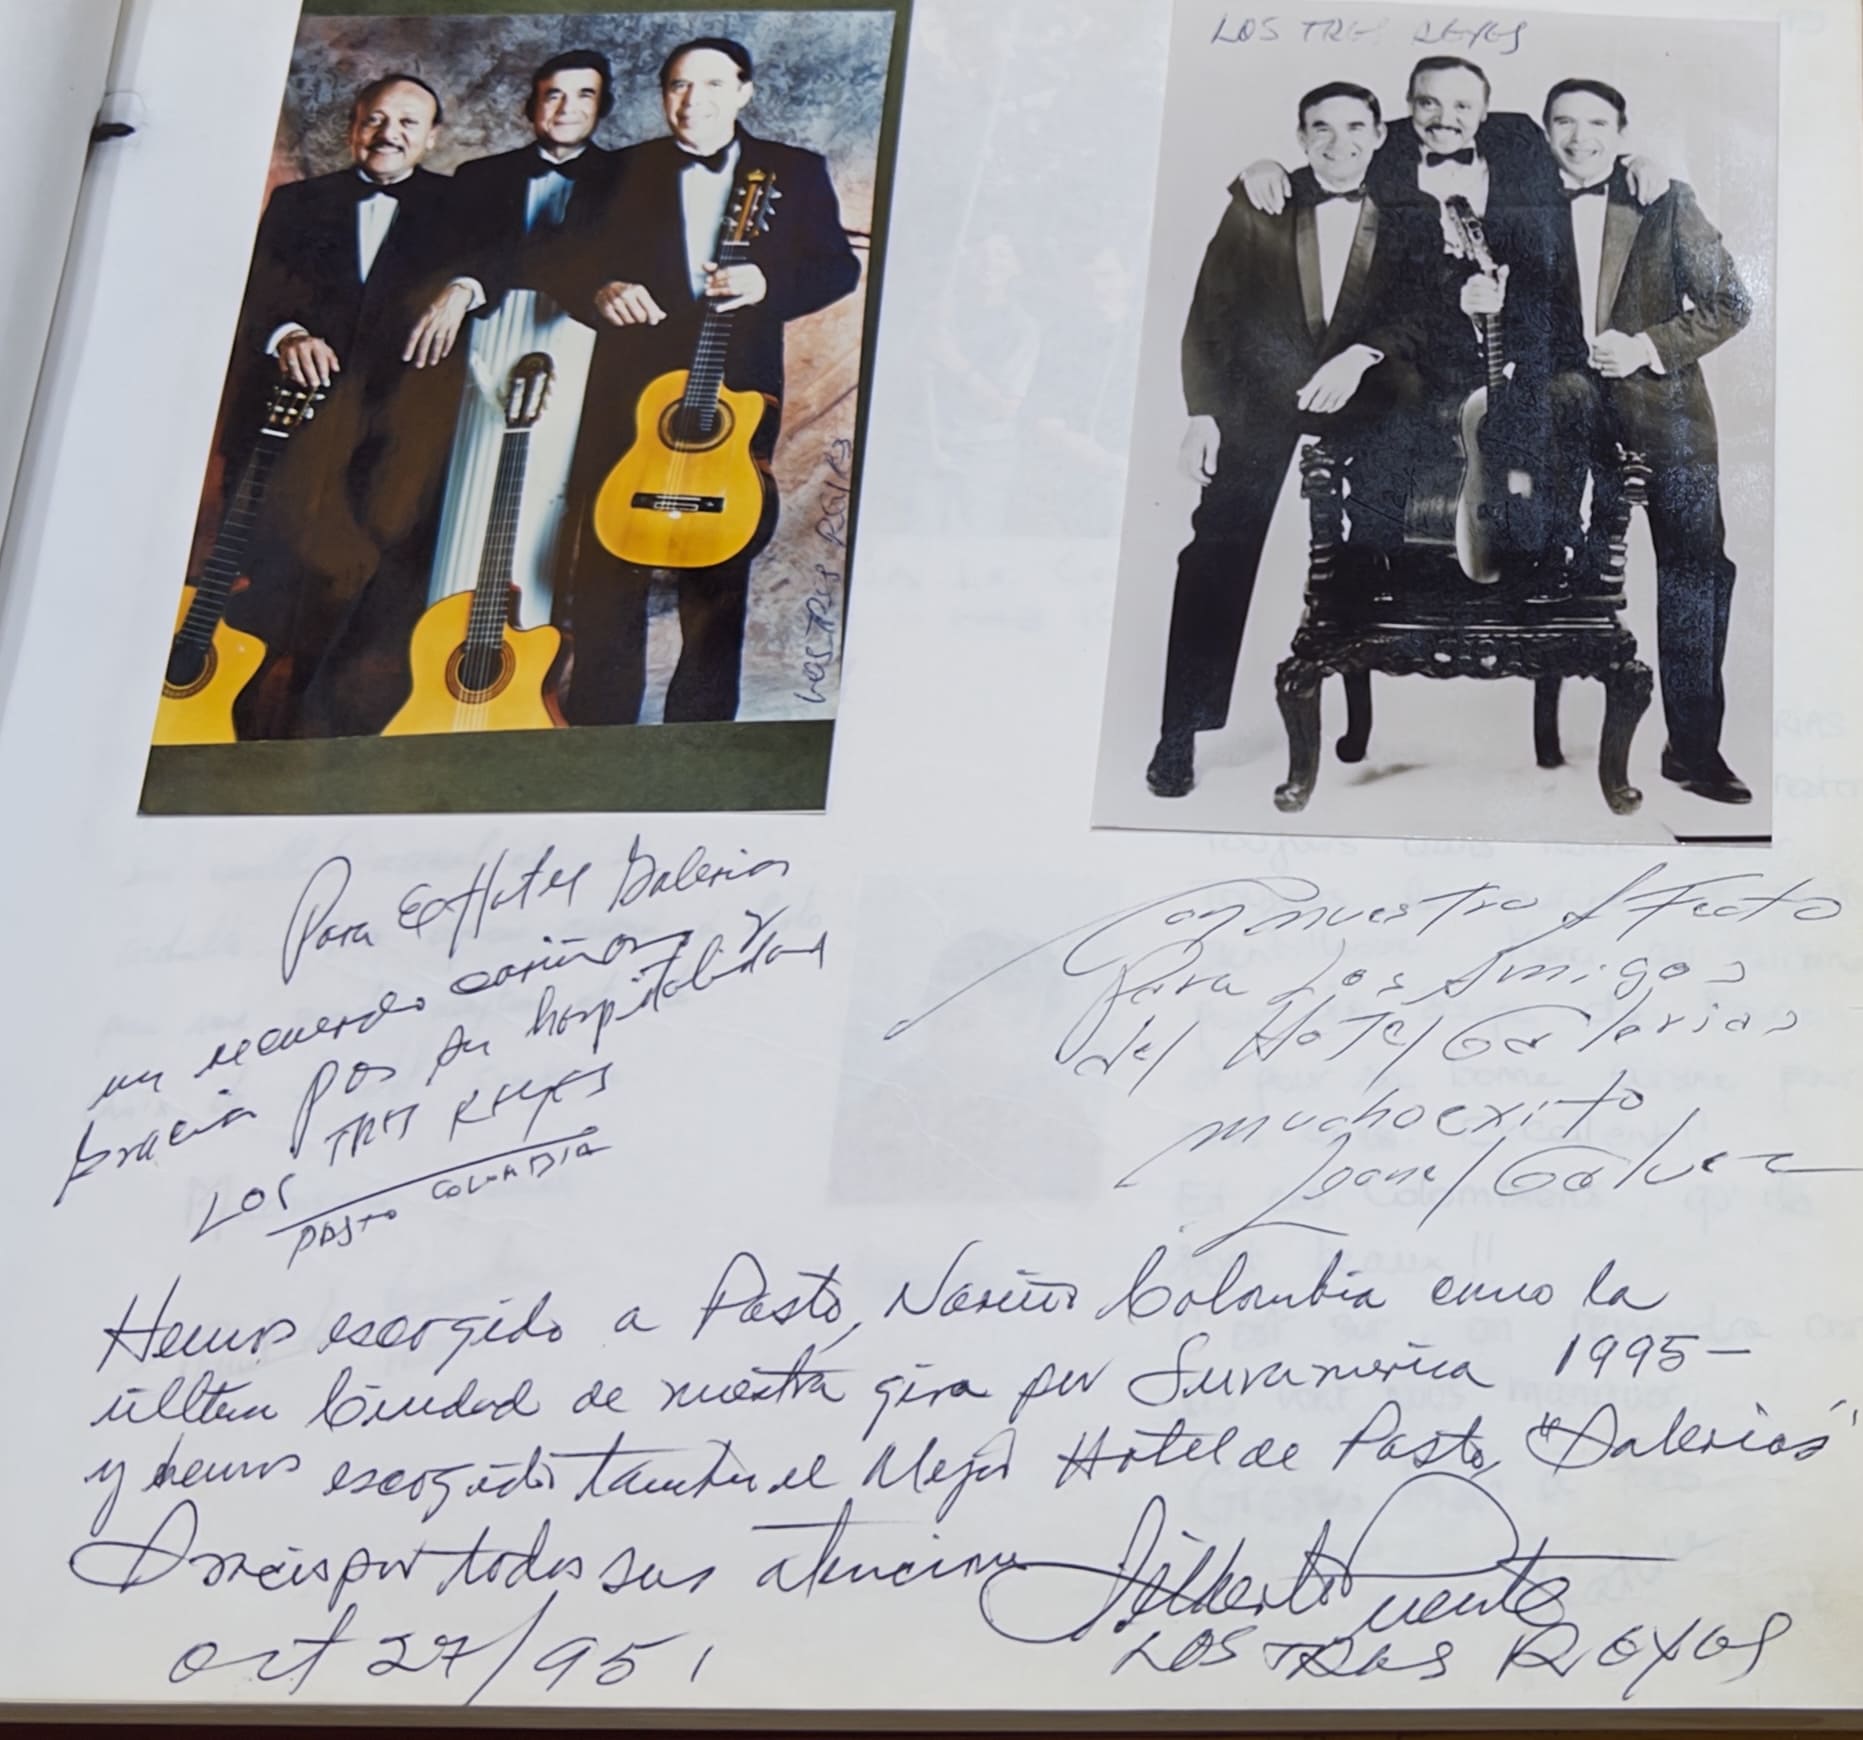 LOS TRES REYES
LOS TRES REYES
Para El Hotel Galerias
un recuerdo cariñoso y
Gracias por su hospitalidad
LOS TRES REYES
PASTO COLOMBIA
Con nuestro Afecto
Para Los Amigos
del Hotel Galerias
mucho exito
Galvez
Hemos escogido a Pasto, Nariño Colombia como la
última Ciudad de nuestra gira por Suramerica 1995-
y hemos escogido tambien el Mejor Hotel de Pasto, "Galerias"
Gracias por todas sus atenciones
Gilberto Puente
oct 27/95
LOS TRES REYES